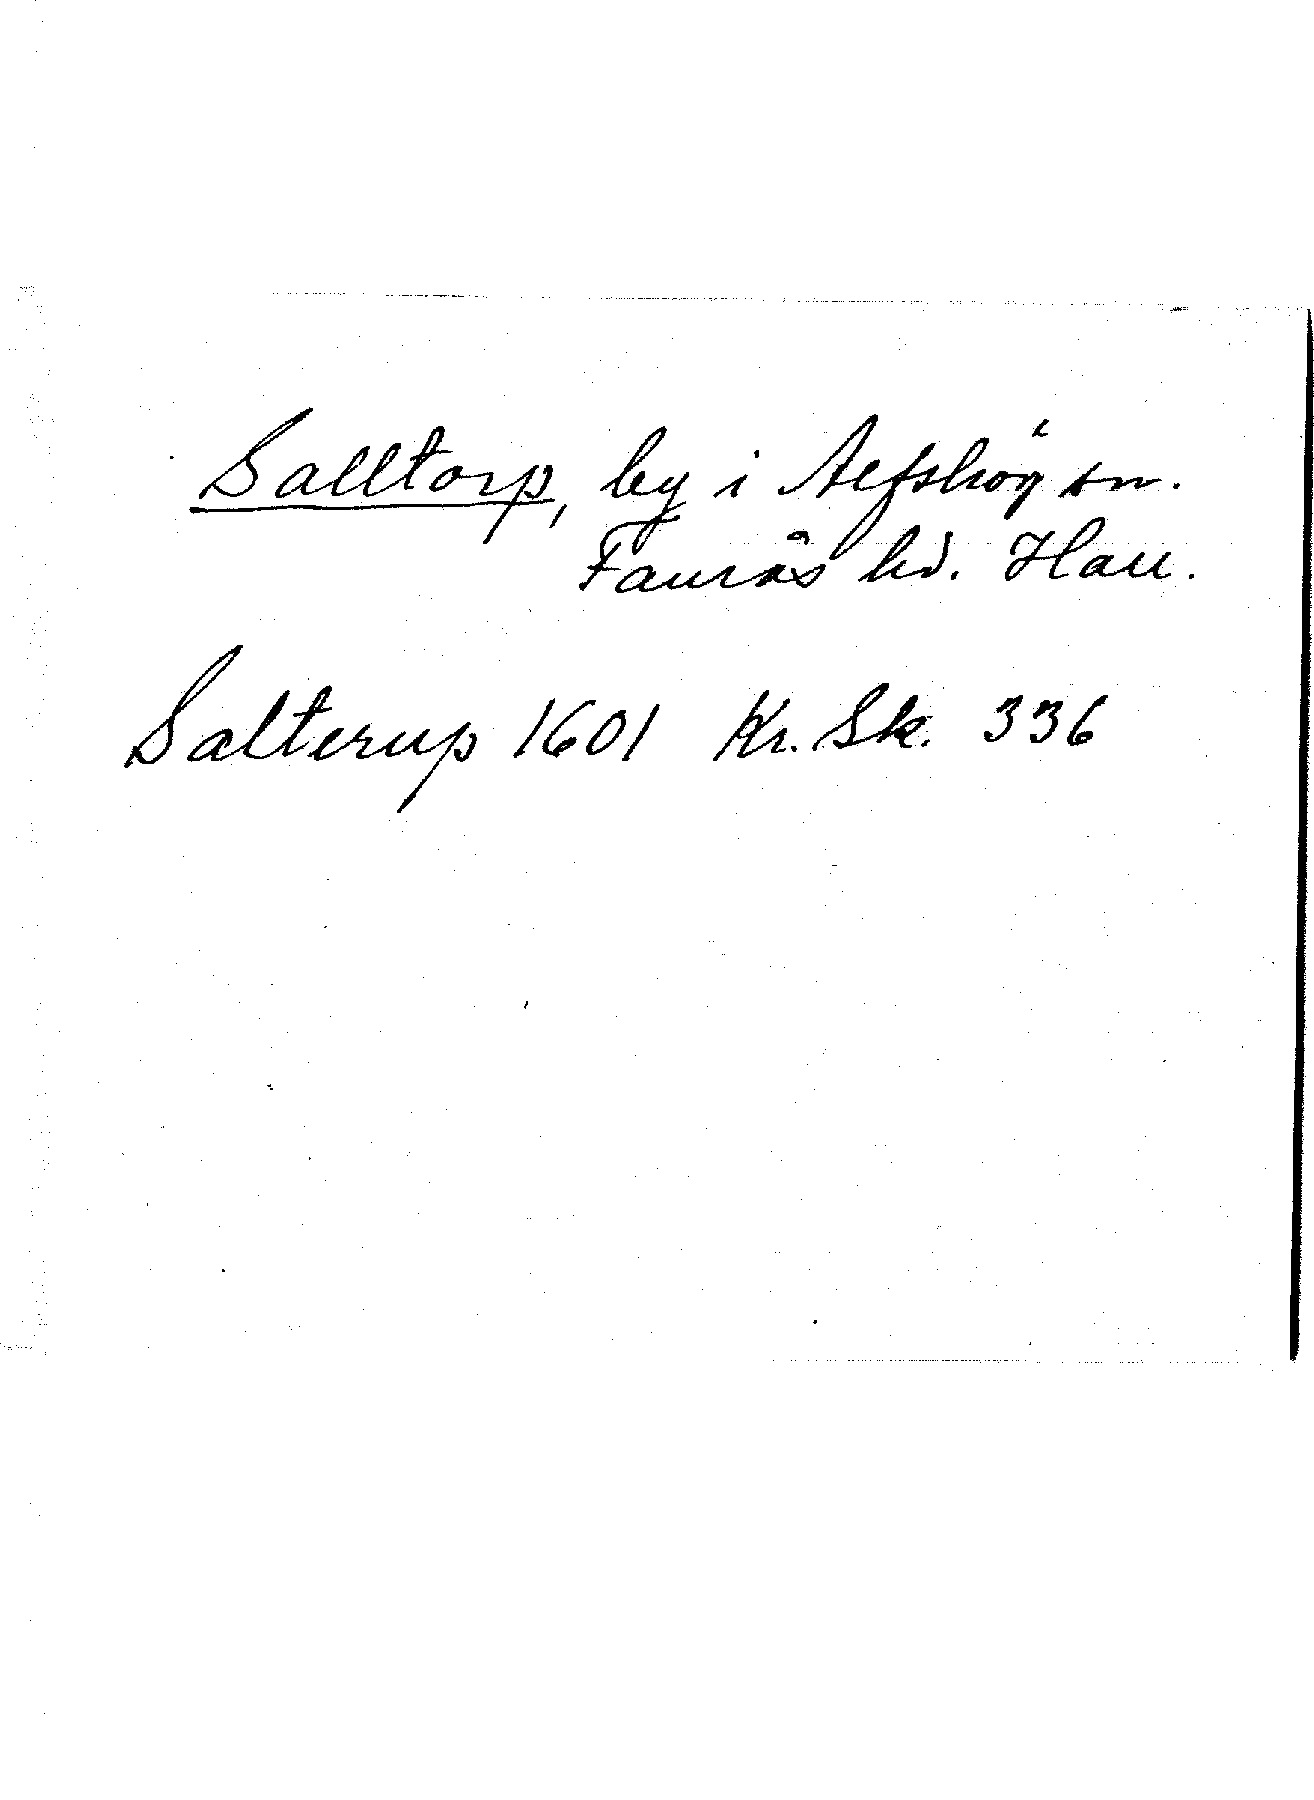 Salltorp, by i Alfshög sn.
Faurås hd. Hall.
Salterup 1601 Kr. Sk. 336